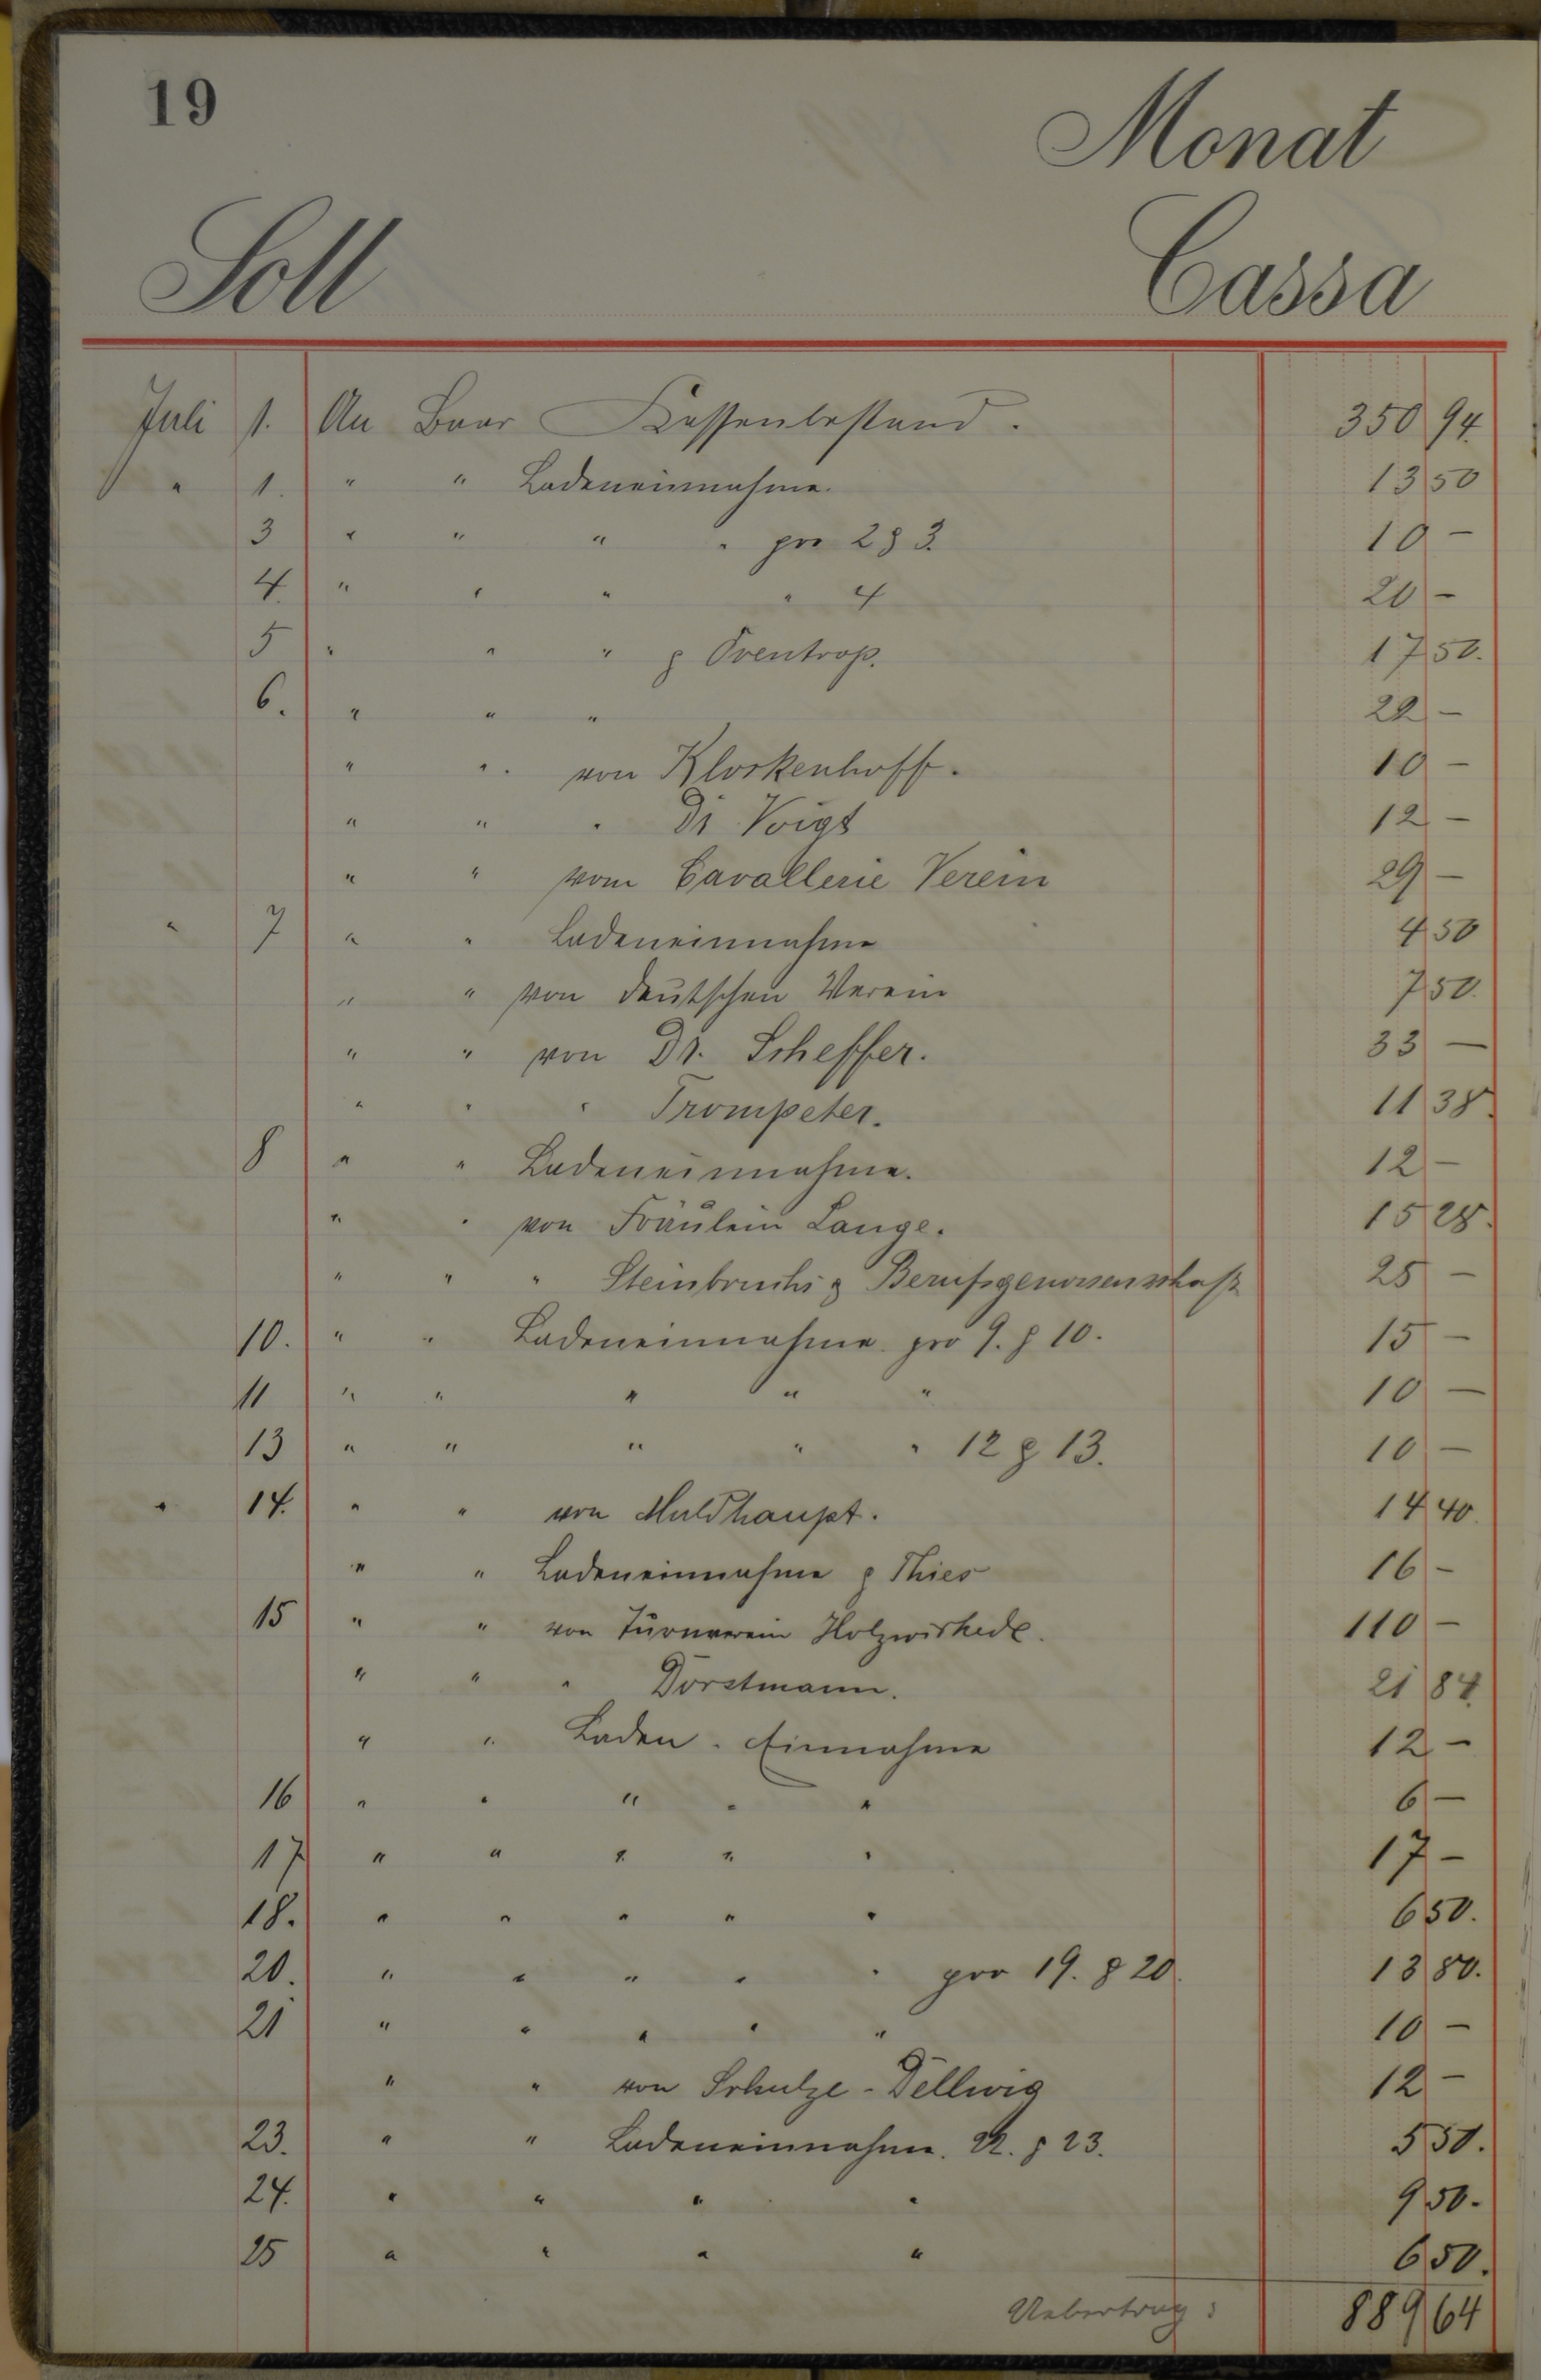 19
Monat
Soll Cassa
Juli 1. An Baar Kassenbestand. 350 94
" 1. " " Ladeneinnahme. 13 50
3 " " " " pro 2 & 3. 10 -
4. " " " " 4 20 -
5 " " " & Oventrop. 17 50.
6. " " " 22 -
" " von Klockenhoff. 10 -
" " " Dr Voigt 12 -
" " vom Cavallerie Verein 29 -
" 7 " " Ladeneinnahme 4 50
" " von deutschen Verein 7 50.
" " von Dr. Scheffer. 33 -
" " " Trompeter. 11 38.
8 " " Ladeneinnahme. 12 -
" " von Fräulein Lange. 15 28.
" " " Steinbruchs & Berufsgenossenschaft 25 -
10. " " Ladeneinnahme pro 9. & 10. 15 -
11 " " " " " 10 -
13 " " " " " 12 & 13. 10 -
" 14. " " von Muldhaupt. 14 40.
" " Ladeneinnahme & Thies 16 -
15 " " von Turnverein Holzwickede. 110 -
" " " Dorstmann. 21 84.
" " Laden-Einnahme 12 -
16 " " " " " 6 -
17 " " " " " 17 -
18. " " " " " 6 50.
20. " " " " " pro 19. & 20. 13 80.
21 " " " " " 10 -
" " von Schulze-Dellwig 12 -
23. " " Ladeneinnahme. 22. & 23. 5 50.
24. " " " " 9 50.
25 " " " " 6 50.
Uebertrag: 889 64